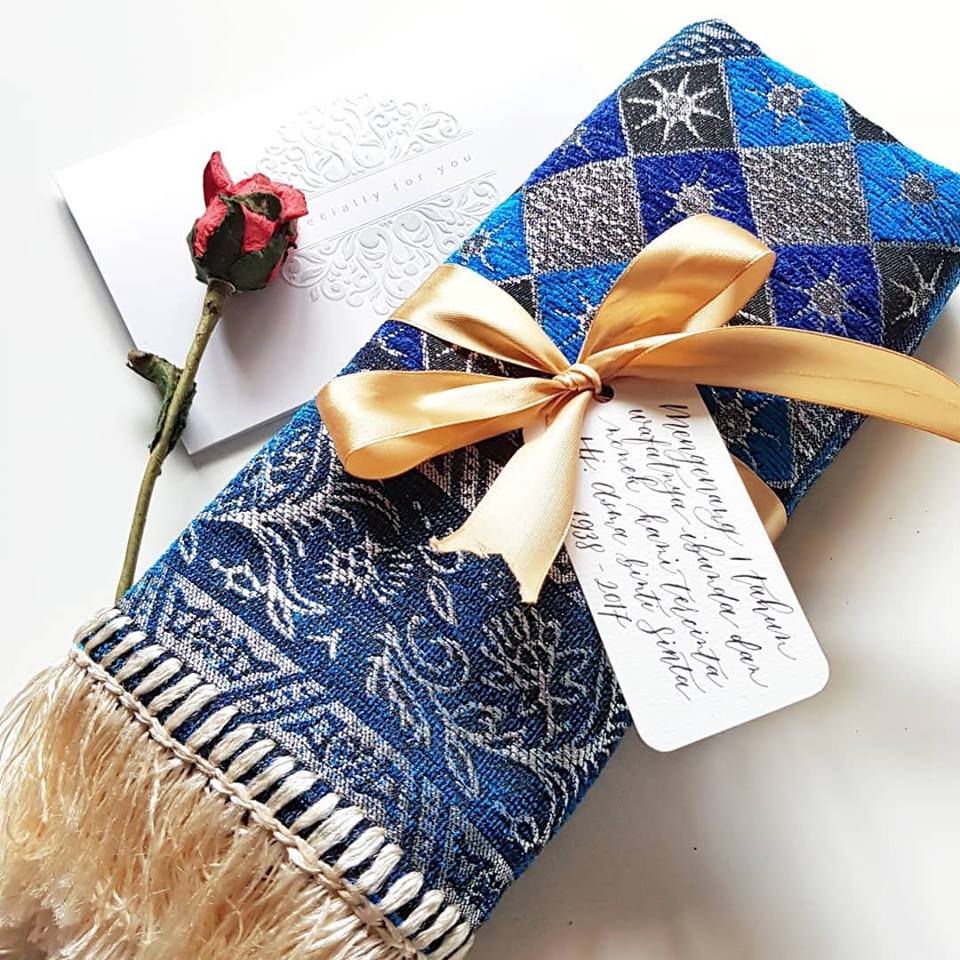 ecially for you
Mengenang 1 tahun
wafatnya ibunda dan
nenek kami tercinta
dona binti Sinta
1938 - 2017